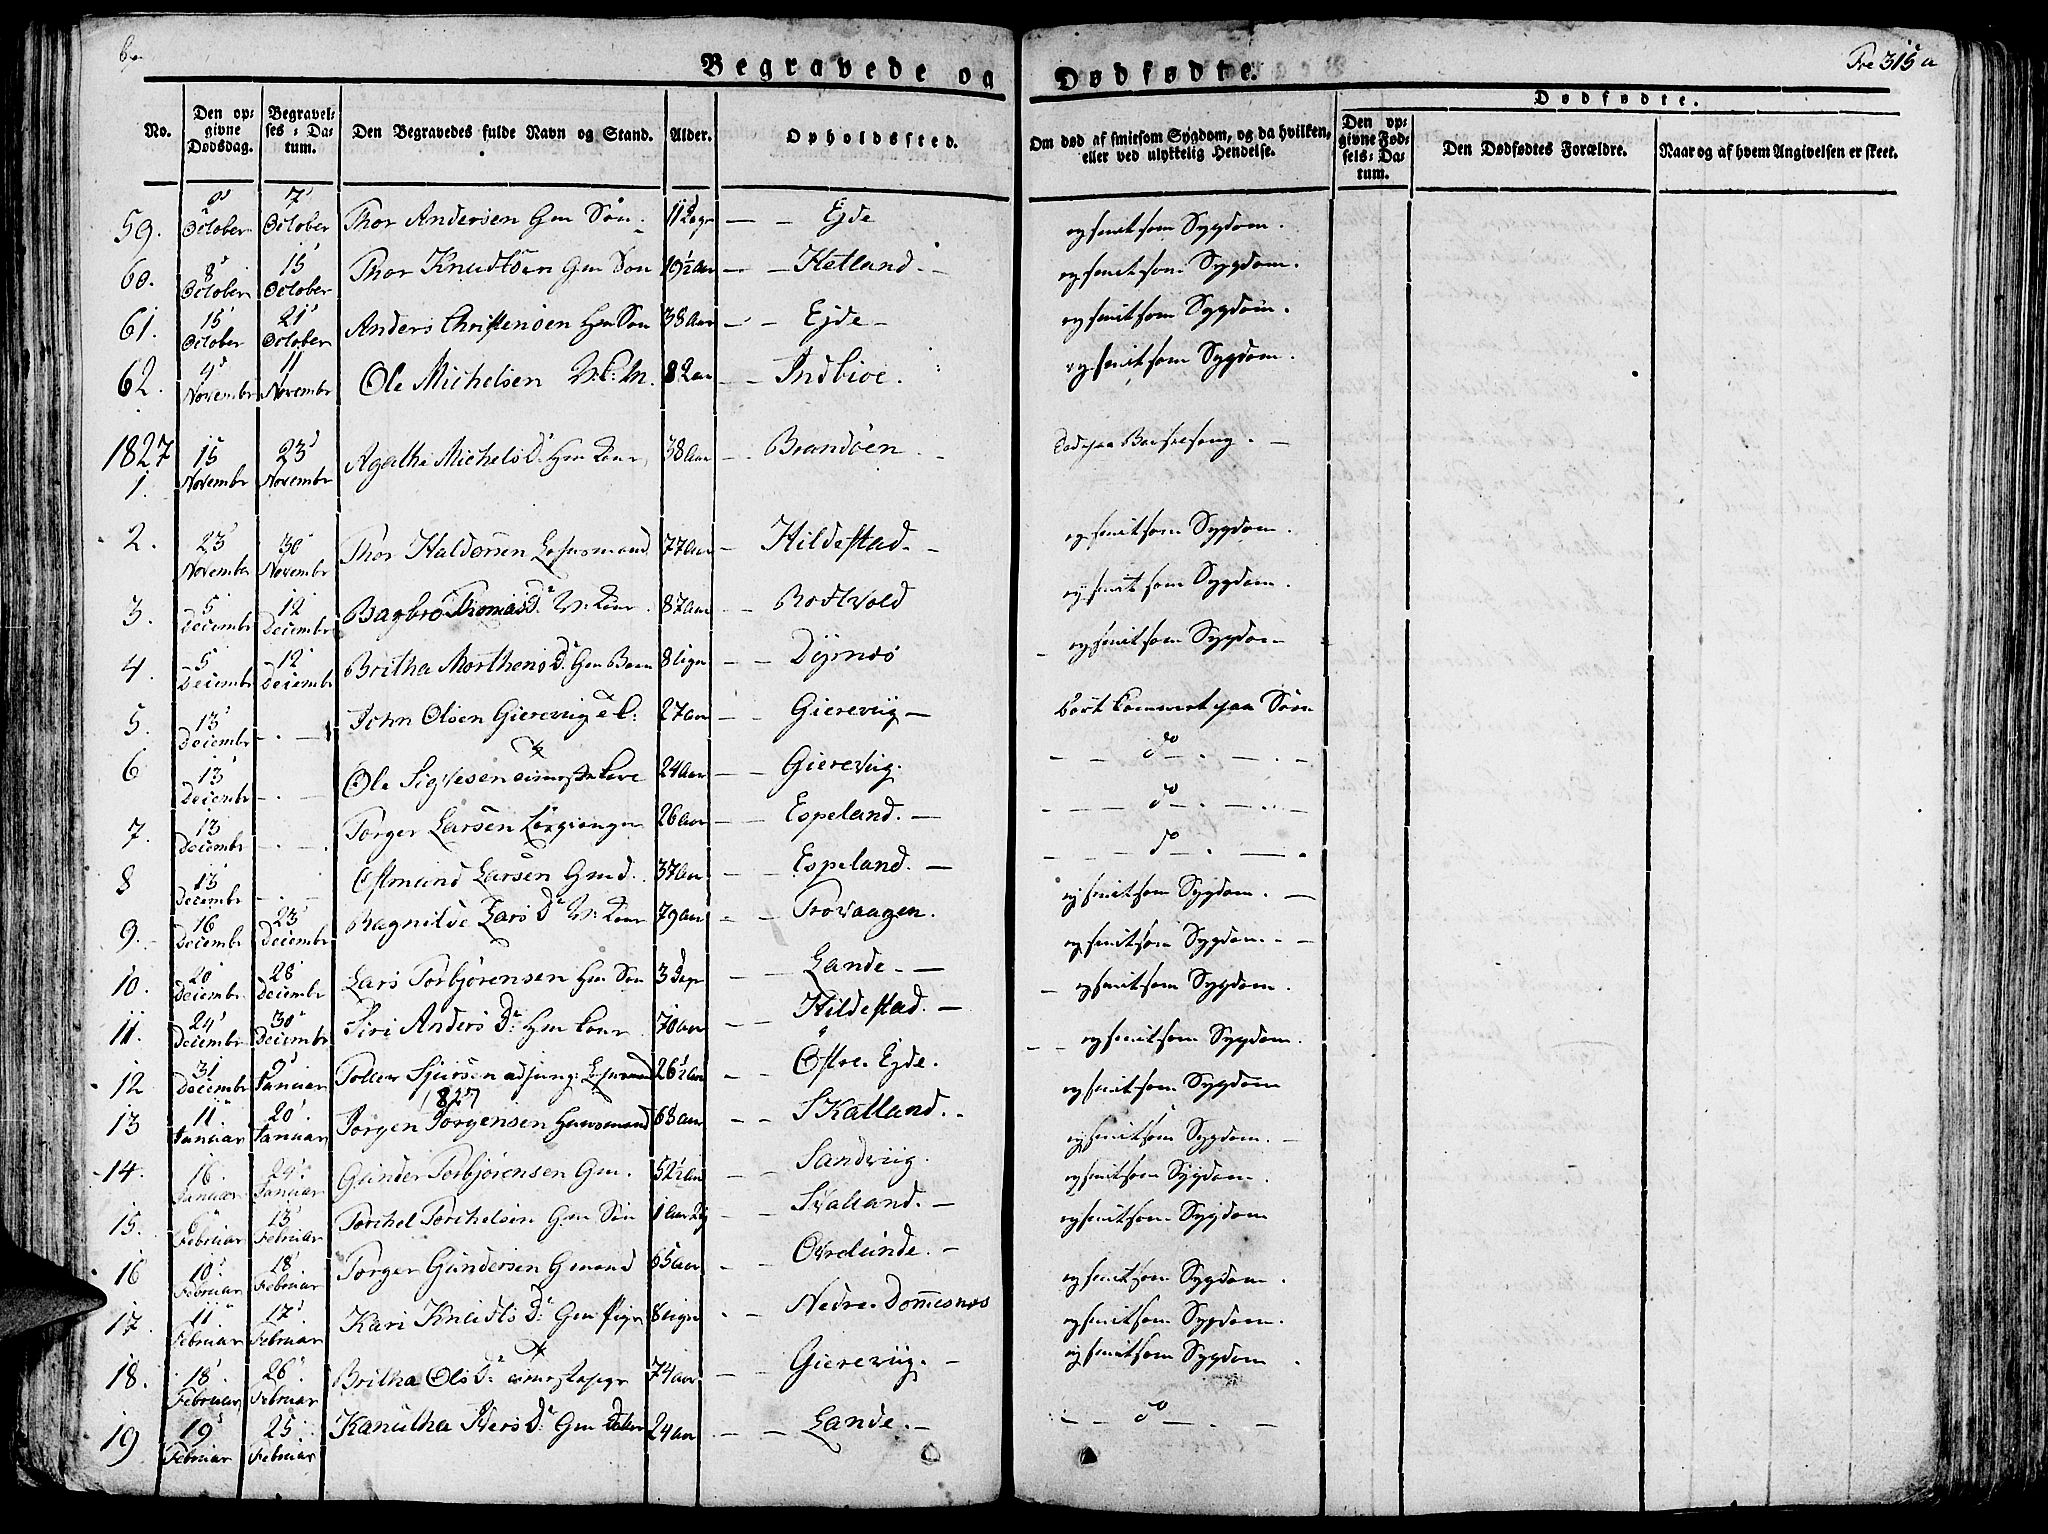 Begravede og Dødfødte.
315 a
No.
Den opgivne Dødsdag.
Begravelses-Datum.
Den Begravedes fulde Navn og Stand.
Alder.
Opholdssted.
Om død af smitsom Sygdom, og da hvilken, eller ved ulykkelig Hendelse.
Dødfødte.
Den opgivne Fødsels-Datum.
Den Dødfødtes Forældre.
Naar og af hvem Angivelsen er skeet.
59. October 7 October Thor Andersen Gm Søn 11 Dage — — Ejde ej smitsom Sygdom.
60. 8 October 15 October Thor Knudtsen Gm Søn 19½ Aar — — Hetland. ej smitsom Sygdom.
61. 15 October 21 October Anders Christensen Hm Søn 38 Aar — — Ejde — ej smitsom Sygdom.
62. 4 November 11 November Ole Michelsen 82 aar — — Indbioe. ej smitsom Sygdom.
1827
1. 15 Novembr 23 Novembr Agatha Michels D. Hm Kone 38 Aar — — Brandøen død paa Barselseng.
2. 23 November 30 Novembr Thor Haldorsen 77 Aar — Hildestad. — ej smitsom Sygdom.
3. 5 Decembr 12 Decembr Bagbro Thomas D. Kone 87 aar — — Bodtvold ej smitsom Sygdom.
4. 5 Decembr 12 Decembr Britha Morthens D. Gm Barn 8 Uger — — Dyrnæs ej smitsom Sygdom
5. 13 Decembr — . — John Olsen Gierevig 27 aar — — Gierevig — bort kommet paa Søen
6 13 Decembr — . — Ole Sigvesen 24 Aar — — Gierevig. — do — . — . —
7. 13 Decembr — . — Torger Larsen 26 aar — — Espeland. — — do — . —
8 13 Decembr — . — Ostmund Larsen Gmd. 37 Aar — — Espeland. — — do — . —
9. 16 Decembr 23 Decembr Ragnilde Lars D. Kone 79 aar — — Trovaagen. ej smitsom Sygdom. —
10. 20 Decembr 28 Decembr Lars Torbjørensen Hm Søn 3 Dage — — Lande. — ej smitsom Sygdom. —
11. 24 Decembr 30 Decembr Siri Anders D. Hm Kone 70 aar — — Hildestad. — ej smitsom Sygdom.
12 31 Decembr Januar Tollev Sjursen adjung. 26½ Aar — — Østre Ejde. ej smitsom Sygdom.
1827
13 11 Januar 20 Januar Jørgen Jørgensen Huusmand 68 aar — — Skatland. ej smitsom Sygdom
14. 16 Januar 24 Januar Gunder Torbjørensen Gm. 52½ aar — — Sandviig. ej smitsom Sygdom. —
15. 6 Februar 13 Februar Torchel Torchelsen Gm Søn — — Svalland. — ej smitsom Sygdom.
16 10 Februar 18 Februar Torger Gundersen Gmand 65 aar — — Øvrelunde. — ej smitsom Sygdom
17. 11 Februar 17 Februar Kari Knudts D. Gm Pige 8 Uger — Nedre Dommesnæs ej smitsom Sygdom.
18. 18 Februar 26 Februar Britha Ols D. 74 aar — — Gierevig. — ej smitsom Sygdom.
19 19 Februar 25 Februar Kanutha Ivers D. Gm Datter 24 aar — — Lande. — ej smitsom Sygdom
— — do — . —